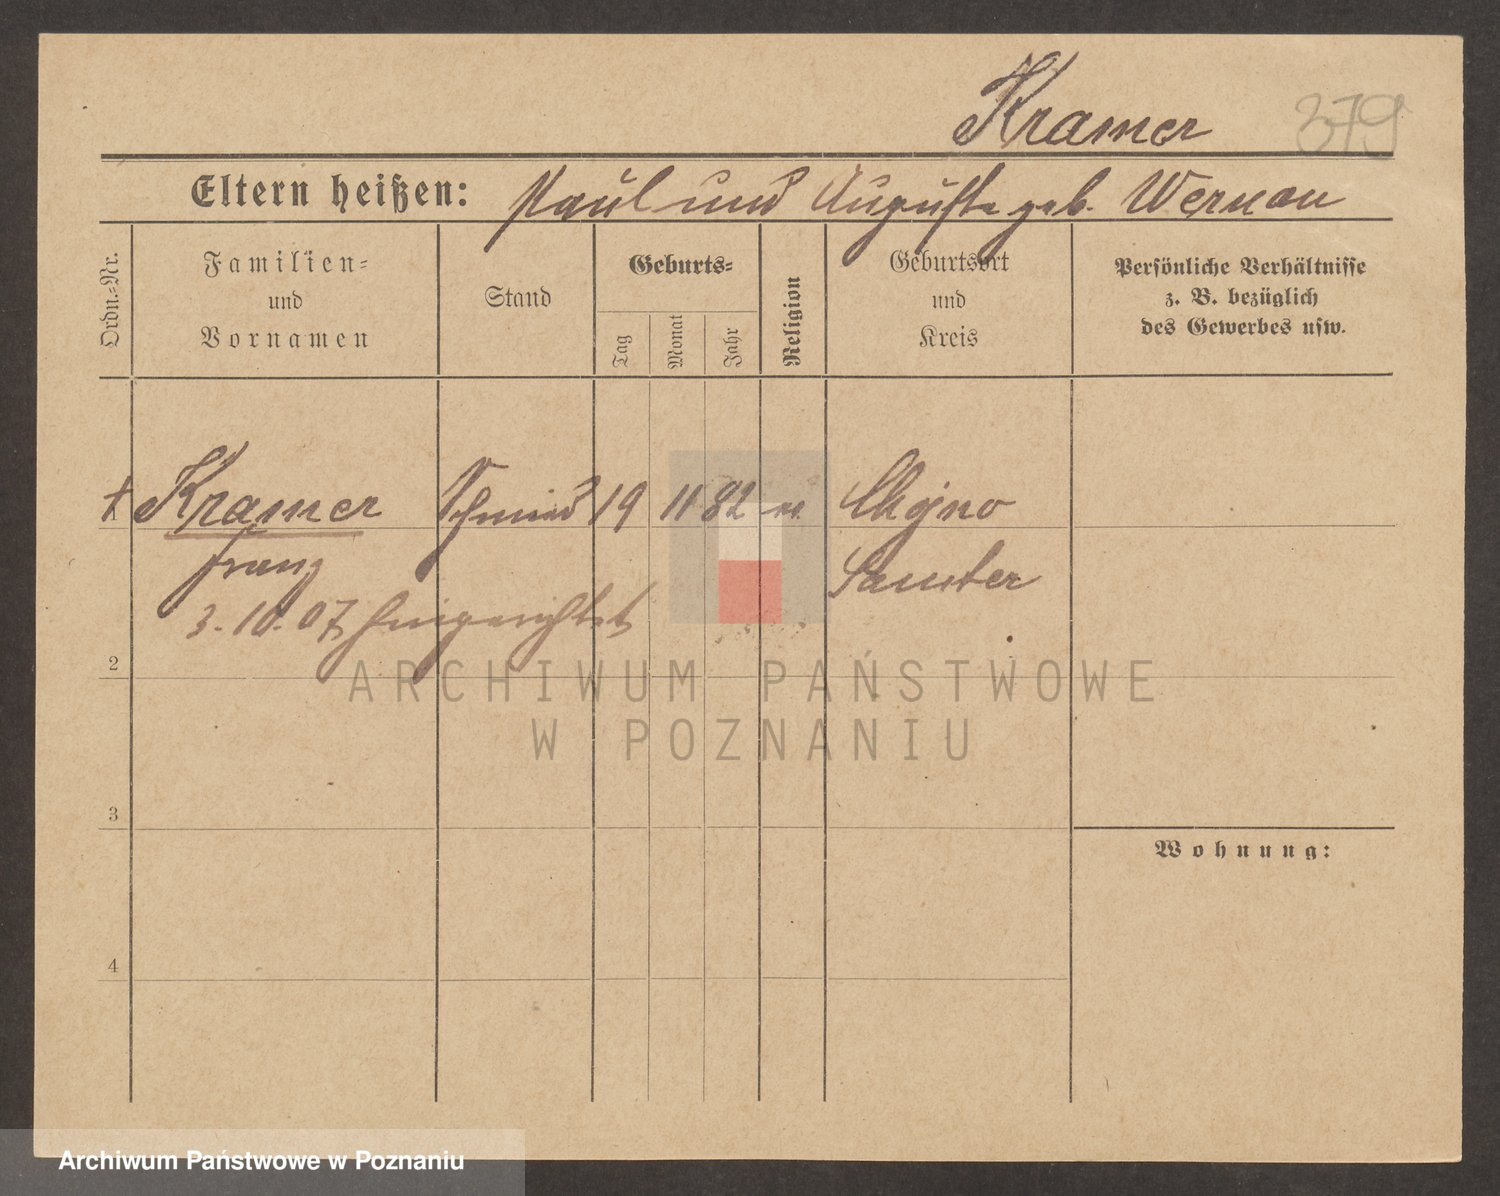 Kramer 379
Eltern heißen: Paul und Auguste geb. Wernau
Ordn.=Nr.
Familien=
und
Vornamen
Stand
Geburts=
Tag
Monat
Jahr
Religion
Geburtsort
und
Kreis
Persönliche Verhältnisse
z. B. bezüglich
des Gewerbes usw.
1 Kramer Schmied 19 11 82 Chojno
Franz Samter
3.10.07 hingerichtet
2
ARCHIWUM PAŃSTWOWE
W POZNANIU
3
Wohnung:
4
Archiwum Państwowe w Poznaniu